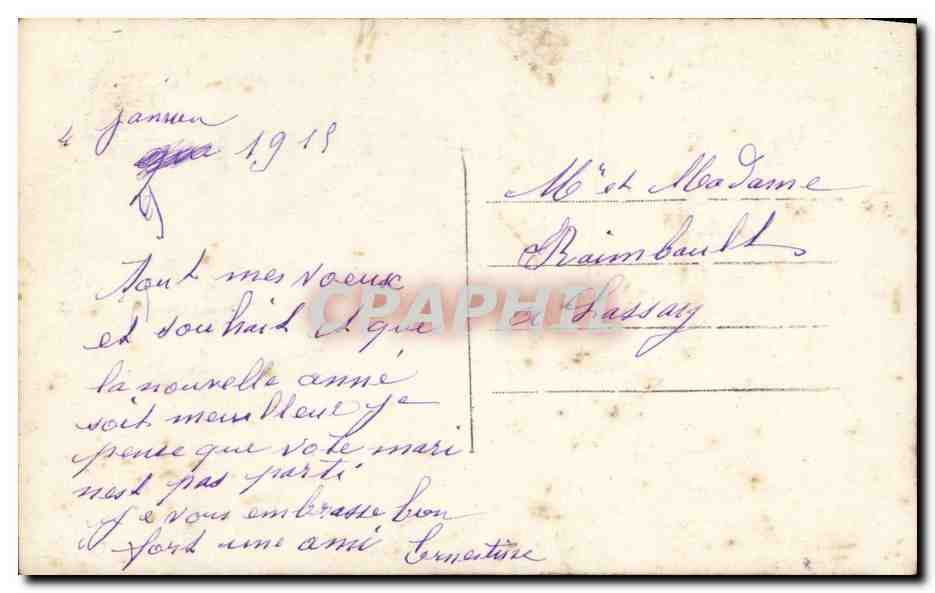 4 janvier
1915
Tout mes voeux
et souhait et que
la nouvelle anné
soit meuilleue je
pense que vote mari
nest pas parti
Je vous embrasse bien
fort une ami Ernestine
Mr et Madame
Raimbault
a Lassay
CPAPHIL